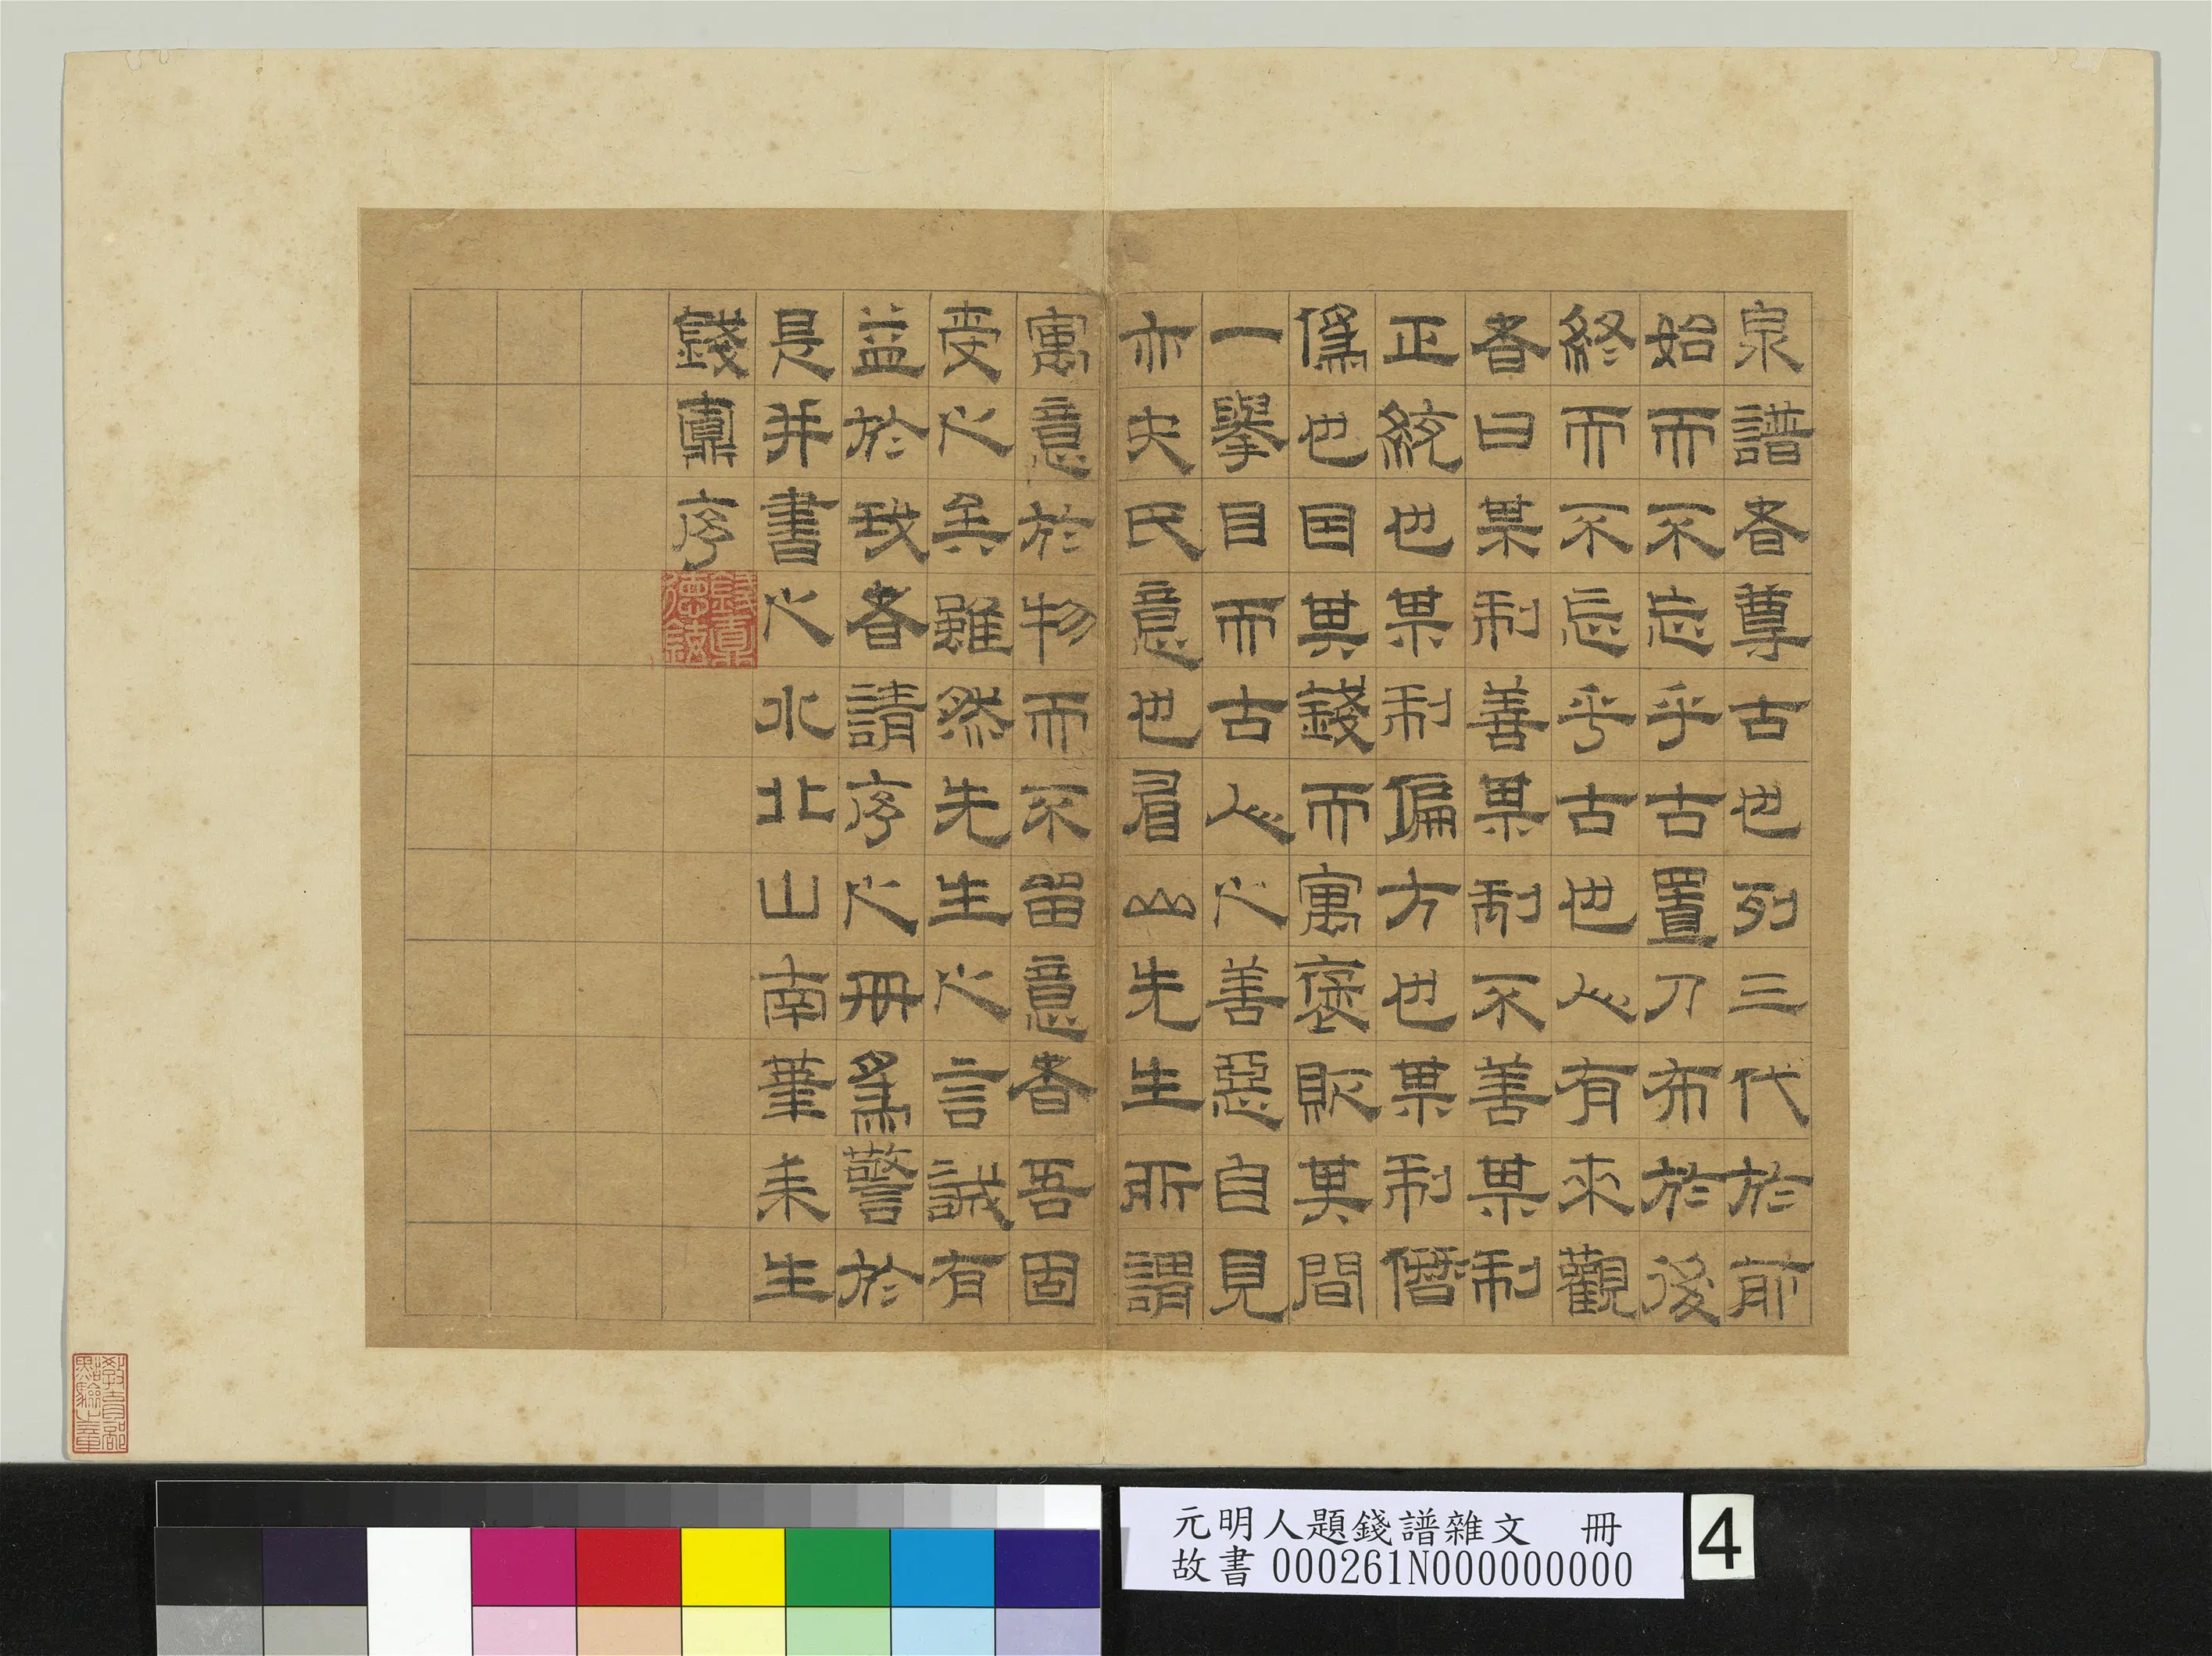 泉譜者尊古也列三代於前
始而不忘乎古置刀布於後
終而不忘乎古也人有來觀
者曰某制善某制不善某制
正統也某制偏方也某制僭
偽也因其錢而寓褒貶其間
一舉目而古人之善惡自見
亦史氏意也眉山先生所謂
寓意於物而不留意者吾固
受之矣雖然先生之言誠有
益於我者請序之冊爲警於
是并書之水北山南筆耒生
錢鼒序
錢鼒德鉉
教育部點驗之章
元明人題錢譜雜文 冊
故書 000261N000000000
4